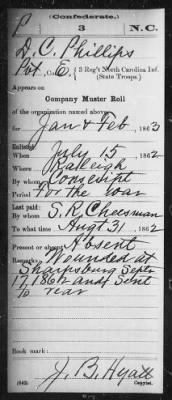 (Confederate.)
P 3 N.C.
D. C. Phillips
Pvt, Co. E, 3 Reg't North Carolina Inf.
(State Troops.)
Appears on
Company Muster Roll
of the organization named above,
for Jan & Feb, 1863
Enlisted:
When July 15, 1862
Where Raleigh
By whom Conscript
Period The War
Last paid:
By whom S. R. Cheesman
To what time Augt 31, 1862
Present or absent Absent
Remarks: Wounded at
Sharpsburg Septr
17, 1862 and Sent
To rear
Book mark:
J. B. Hyatt
(642) Copyist.